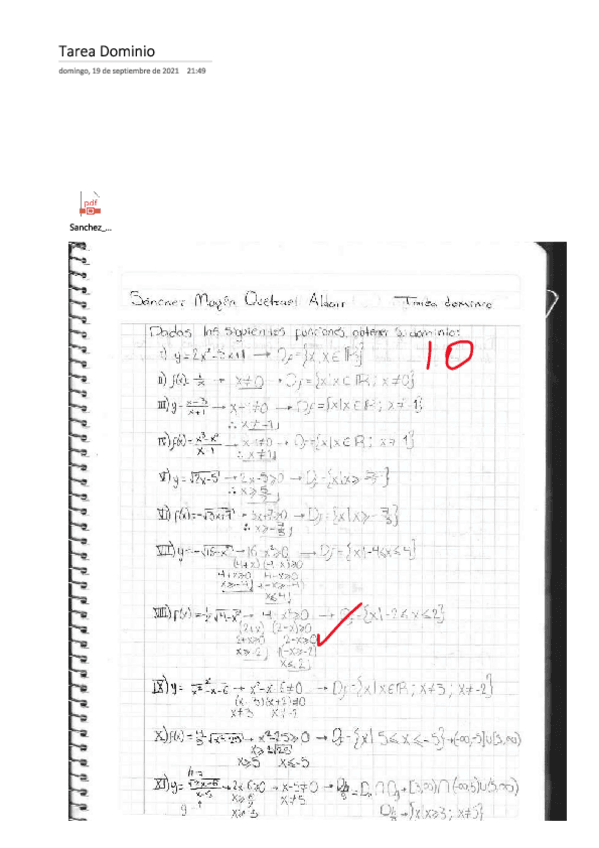 Tarea Dominio
domingo, 19 de septiembre de 2021 21:49
pdf
Sanchez_...
Sánchez Aldair Tarea dominio
Dadas las siguientes funciones, obtener su dominio:
10
I) y = 2x² - 5x + 1 → Df = {x | x ∈ ℝ}
II) f(x) = 1/x → x ≠ 0 → Df = {x | x ∈ ℝ ; x ≠ 0}
III) y = x-3/x+1 → x + 1 ≠ 0 → Df = {x | x ∈ ℝ ; x ≠ -1}
∴ x ≠ -1
IV) f(x) = x³-x²/x-1 → x-1 ≠ 0 → Df = {x | x ∈ ℝ ; x ≠ 1}
∴ x ≠ 1
V) y = √2x-5 → 2x-5 ≥ 0 → Df = {x | x ≥ 5/2}
∴ x ≥ 5/2
VI) f(x) = -√3x+7 → 3x+7 ≥ 0 → Df = {x | x ≥ -7/3}
∴ x ≥ -7/3
VII) y = -√16-x² → 16-x² ≥ 0 → Df = {x | -4 ≤ x ≤ 4}
(4+x)(4-x) ≥ 0
4+x ≥ 0 4-x ≥ 0
x ≥ -4 -x ≥ -4
x ≤ 4
VIII) f(x) = √4-x² → 4-x² ≥ 0 → Df = {x | -2 ≤ x ≤ 2}
(2+x)(2-x) ≥ 0
2+x ≥ 0 2-x ≥ 0
x ≥ -2 (-x ≥ -2)
x ≤ 2
IX) y = x/x²-x-6 → x²-x-6 ≠ 0 → Df = {x | x ∈ ℝ ; x ≠ 3 ; x ≠ -2}
(x-3)(x+2) ≠ 0
x ≠ 3 x ≠ -2
X) f(x) = √x²-25 → x²-25 ≥ 0 → Df = {x | 5 ≤ x ≤ -5} → (-∞,-5] ∪ [5,∞)
x ≥ ±√25
x ≥ 5 x ≤ -5
XI) y = √2x-6/x-5 → 2x-6 ≥ 0 → x-5 ≠ 0 → = ∩ Dg → [3,∞) ∩ (-∞,5) ∪ (5,∞)
x ≠ 5
x ≥ 3 {x | x ≥ 3 ; x ≠ 5}